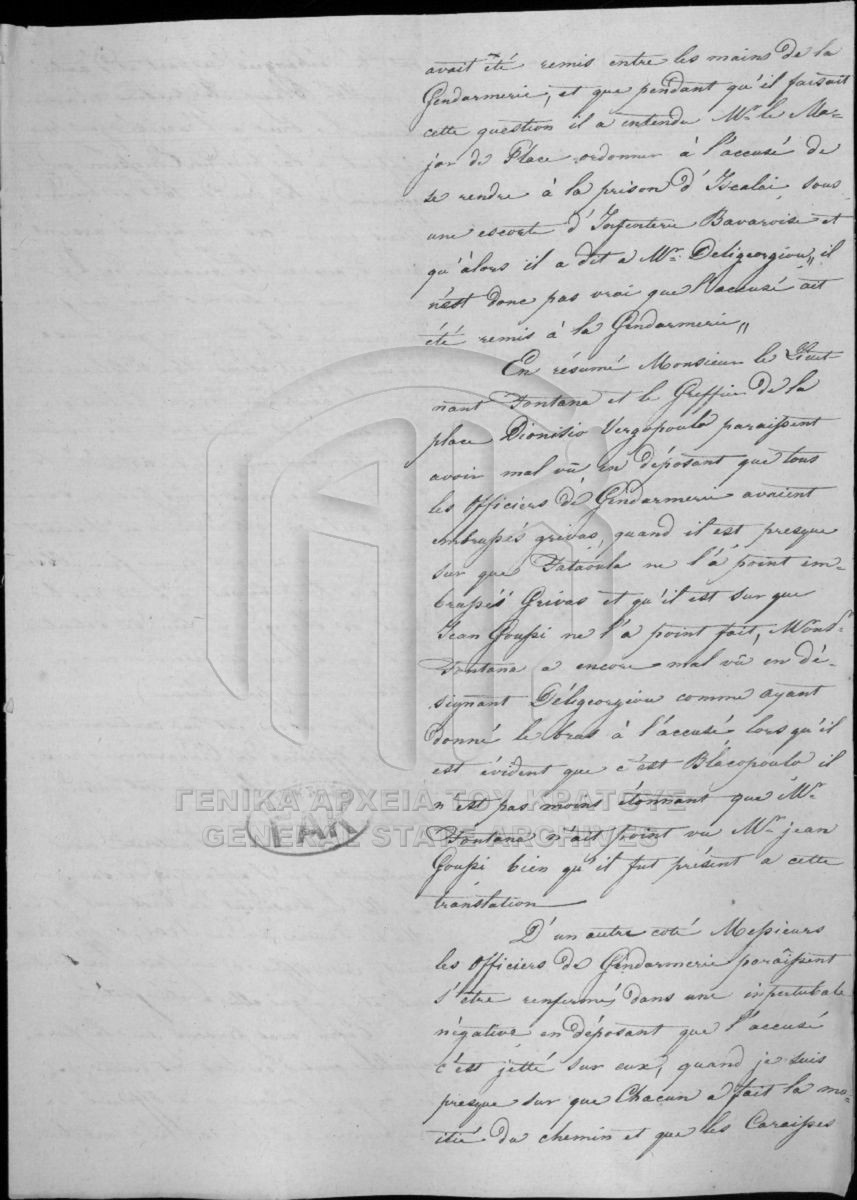 avait été remis entre les mains de la
Gendarmerie, et que pendant qu'il faisait
cette question il a entendu Mr. le Ma-
jor de Place ordonner à l'accusé de
se rendre à la prison d'Iscalai sous
une escorte d'Infenterie Bavaroise et
qu'àlors il a dit a Mr. Deligeorgiou „il
n'est donc pas vrai que l'accusé ait
été remis à la Gendarmerie„
En résumé Monsieur le Lieut
nant Fontana et le Greffier de la
place Dionisio Vergopoulo paraissent
avoir mal vû en déposant que tous
les officiers de Gendarmerie avaient
embrassés grivas, quand il est presque
sur que Fataoula ne l'a point em-
brassés Grivas et qu'il est sur que
Jean Goussi ne l'a point fait, Monsr
Fontana a encore mal vû en dé-
signant Déligeorgiou comme ayant
donné le bras à l'accusé lorsqu'il
est évident que c'est Blacopoulo il
n'est pas moins étonnant que Mr
Fontana n'ait point vu Mr jean
Goussi bien qu'il fut présent a cette
translation
D'un autre coté Messieurs
les officiers de Gendarmerie paraissent
s'être renfermés dans une inperturbale
négative en déposant que l'accusé
c'est jetté sur eux, quand je suis
presque sur que Chacun a fait la mo-
itié du chemin et que les Caraisses
ΓΕΝΙΚΑ ΑΡΧΕΙΑ ΤΟΥ ΚΡΑΤΟΥΣ
GENERAL STATE ARCHIVES
ΓΑΚ